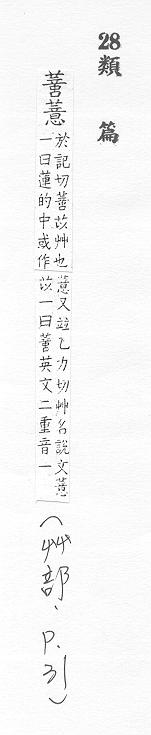 28類篇
薏
於記切苡艸也
一曰蓮的中或作
薏又竝乙力切艸名說文薏
苡一曰英文二重音一
(艸部、P.31)